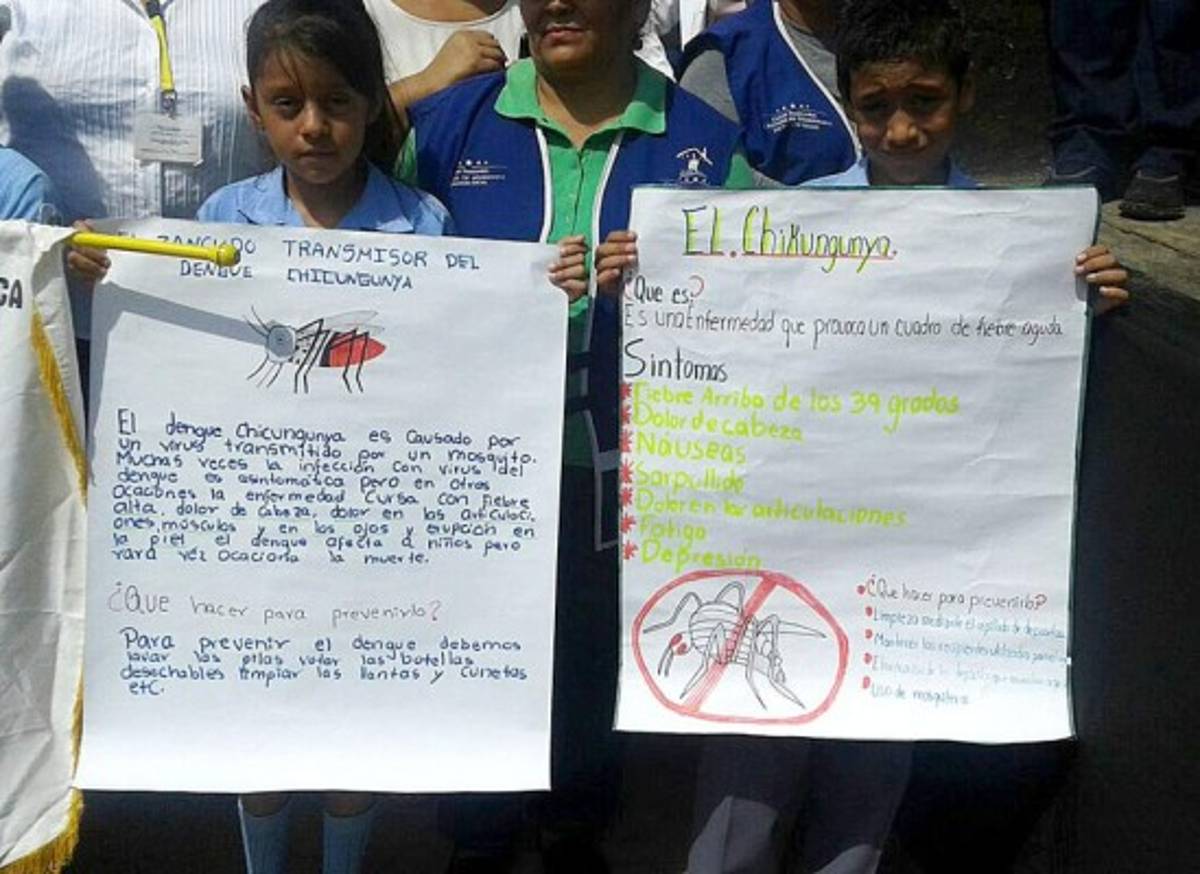 CA
EL ZANCUDO TRANSMISOR DEL
DENGUE CHICUNGUNYA
El dengue Chicungunya es causado por
un virus transmitido por un mosquito.
Muchas veces la infección con virus del
dengue es asintomática pero en otras
Ocaciones la enfermedad cursa con fiebre
alta, dolor de cabeza, dolor en las articulaci-
ones, músculos y en los ojos y erupción en
la piel el dengue afecta a niños pero
rara vez ocaciona la muerte.
¿Que hacer para prevenirlo?
Para prevenir el dengue debemos
lavar las pilas votar las botellas
desechables limpiar las llantas y cunetas
etc.
EL. Chikungunya.
¿Que es?
Es una Enfermedad que provoca un cuadro de fiebre aguda
Sintomas
* Fiebre Arriba de los 39 grados
* Dolor de cabeza
* Náuseas
* Sarpullido
* Dolor en las articulaciones
* Fatiga
* Depresión
¿Que hacer para prevenirlo?
Limpieza mediante el cepillado de
Mantener los recipientes utilizados para
Eliminación de
Uso de mosquiteros